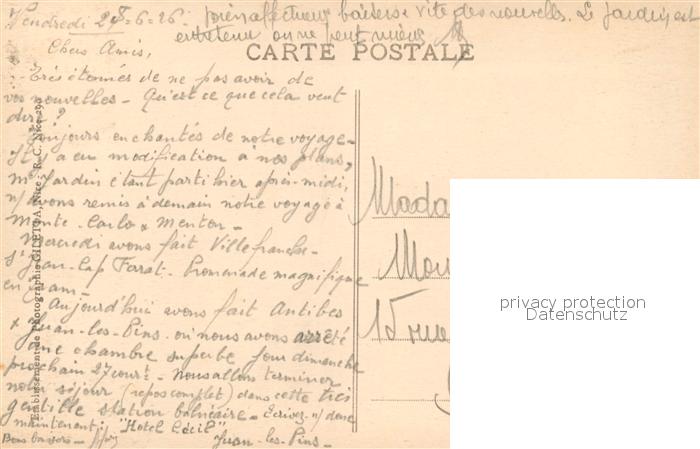 Vendredi 25-6-26. bien affectueux baisers. Vite des nouvelles. Le Jardin est
entretenu on ne peut mieux
CARTE POSTALE
Chers Amis,
Très étonnés de ne pas avoir de
vos nouvelles - Qu'est ce que cela veut
dire?
Toujours enchantés de notre voyage -
Il y a eu modification à nos plans,
Mr Jardin étant parti hier après-midi,
n/ avons remis à demain notre voyage à
Monte-Carlo & Menton -
Mercredi avons fait Villefranche -
St Jean-Cap Ferrat. Promenade magnifique
en tram -
Aujourd'hui avons fait Antibes
& Juan-les-Pins où nous avons arrêté
une chambre superbe pour dimanche
prochain 27 court - Nous allons terminer
notre séjour (repos complet) dans cette très
gentille station balnéaire - Ecrivez-n/ donc
maintenant: "Hotel Cécil"
Bons baisers - Juan-les-Pins -
Etablissement de Photographie GILETTA, Nice
Mada
Mou
15 rue
privacy protection
Datenschutz